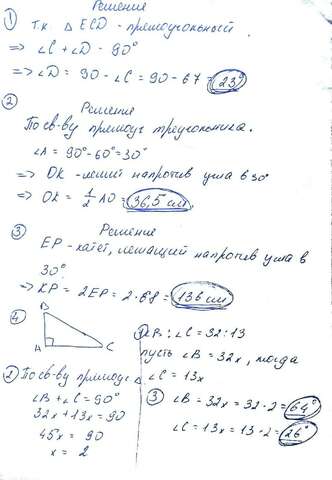 Решение
① Т.к. △ ECD - прямоугольный
⇒ ∠C + ∠D = 90°
⇒ ∠D = 90 - ∠C = 90 - 67 = 23°
②
Решение
По св-ву прямоуг треугольника.
∠A = 90° - 60° = 30°
⇒ OK - лежит напротив угла в 30°
⇒ OK = 1/2 AO = 36,5 см.
③
Решение
EP - катет, лежащий напротив угла в
30°
⇒ KP = 2EP = 2·68 = 136 см
④
B
A
C
① ∠B : ∠C = 32 : 13
пусть ∠B = 32x, тогда
∠C = 13x
② По св-ву прямоуг △
∠B + ∠C = 90°
32x + 13x = 90
45x = 90
x = 2
③ ∠B = 32x = 32·2 = 64°
∠C = 13x = 13·2 = 26°